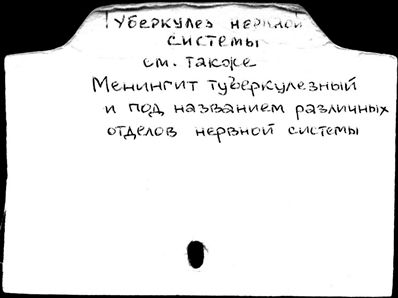 Туберкулез нервной
системы
см. также
Менингит туберкулезный
и под названием различных
отделов нервной системы